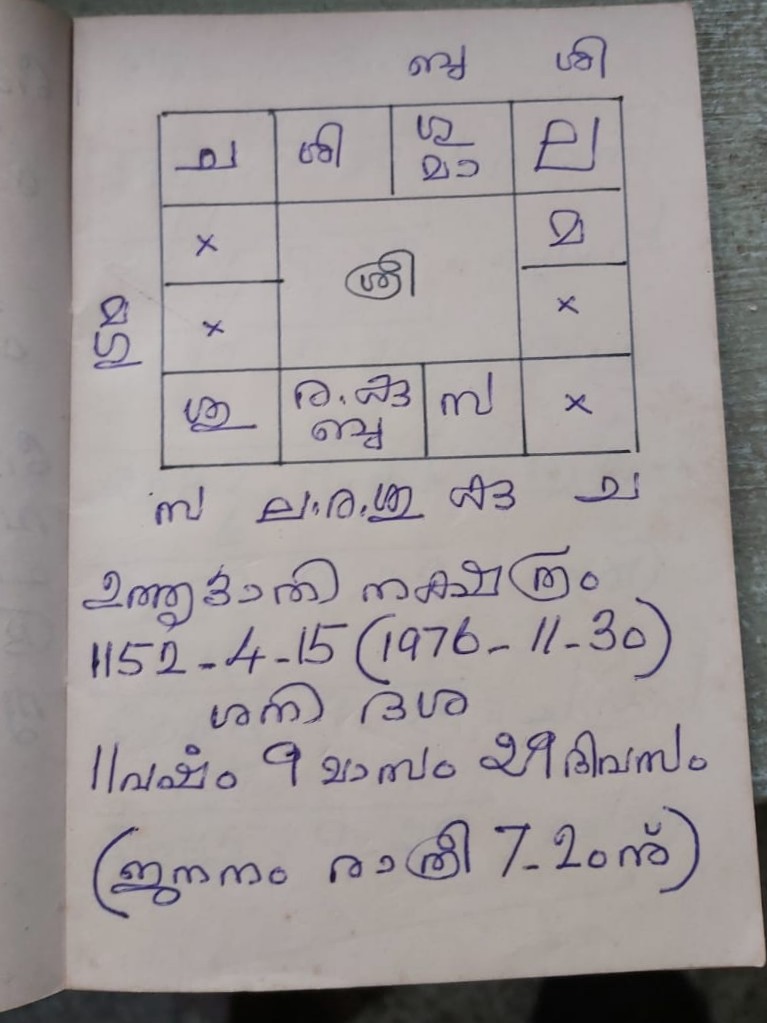 ബു ശി
ച ശി ഗു ല
മാ
× മ
ശ്രീ
× ×
മ ഗു
ശു ര.കു സ ×
ബു
സ ല.ര.ശു കു ച
ഉത്തൃട്ടാതി നക്ഷത്രം
1152-4-15 (1976-11-30)
ശനി ദശ
11വർഷം 9 മാസം 29 ദിവസം
(ജനനം രാത്രി 7-20ന്)